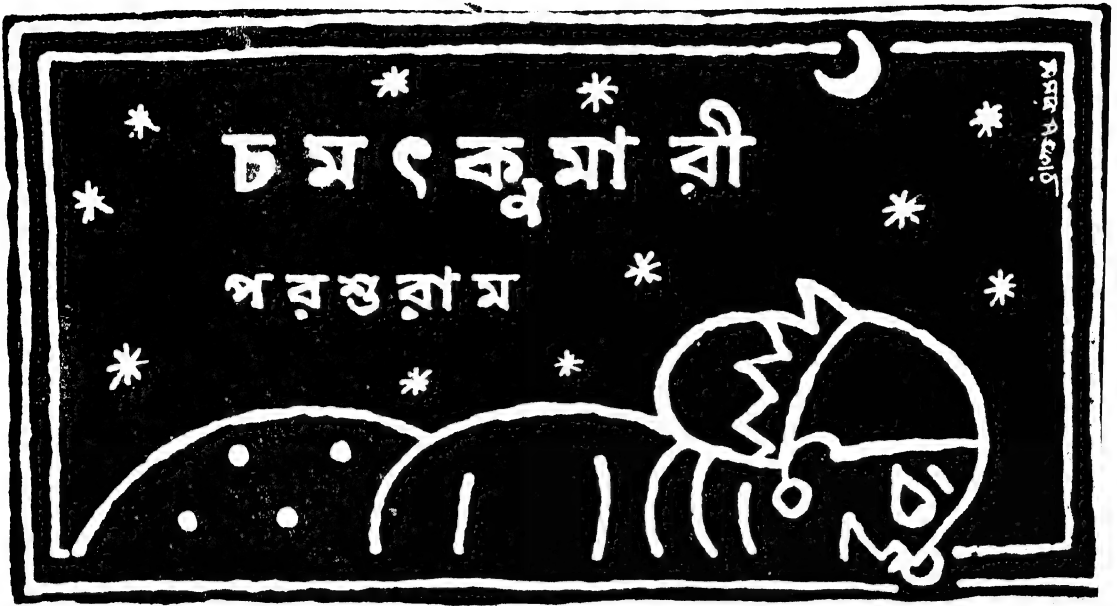 চমৎকুমারী
পরশুরাম